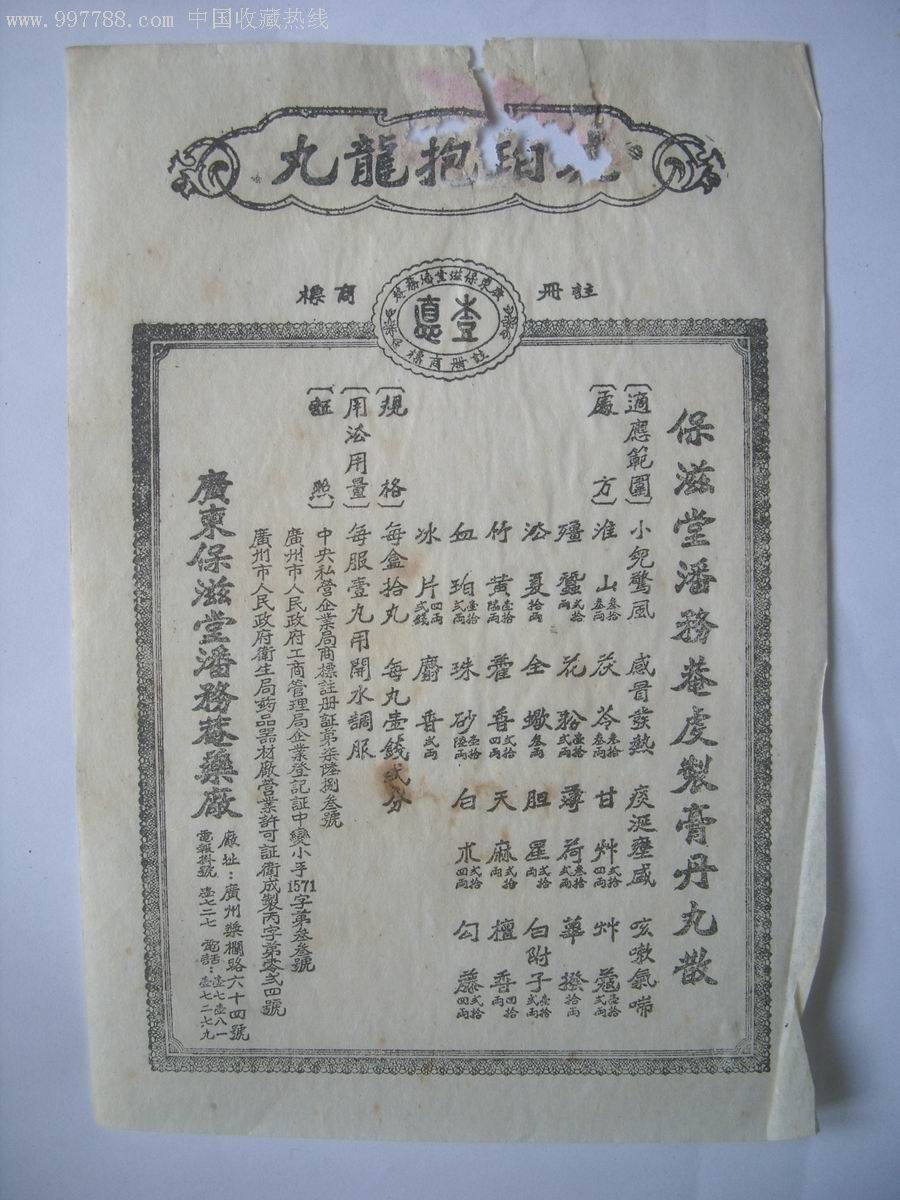 www.997788.com 中国收藏热线
珀抱龍丸
註冊 商標
廣東保滋堂潘務菴
壹德
註冊商標
保滋堂潘務菴虔製膏丹丸散
〔適應範圍〕小兒驚風 感冒發熱 痰涎壅盛 咳嗽氣喘
〔處方〕淮山叁拾叁兩 茯苓叁拾叁兩 甘艸弍拾四兩 艸蔻壹拾弍兩
殭蠶弍拾兩 花粉壹拾弍兩 薄荷叁拾弍兩 蓽撥拾兩
法夏拾兩 全蠍叁兩 胆星弍拾兩 白附子壹拾弍兩
竹黃壹拾陆兩 藿香弍拾四兩 天麻弍拾兩 檀香四拾兩
血珀壹拾弍兩 珠砂壹拾陸兩 白朮四兩 勾藤弍拾四兩
冰片四兩弍錢 麝香弍兩
〔規格〕每盒拾丸 每丸壹錢弍分
〔用法用量〕每服壹丸用開水調服
〔証照〕中央私營企業局商標註册証第柒陸捌叁號
廣州市人民政府工商管理局企業登記証中變小手1571字第叁叁號
廣州市人民政府衛生局葯品器材廠營業許可証衛成製丙字第零弍四號
廣東保滋堂潘務菴藥廠
廠址：廣州槳欄路六十四號
電報掛號 壹七二七 電話：壹七壹八一 壹七二七九